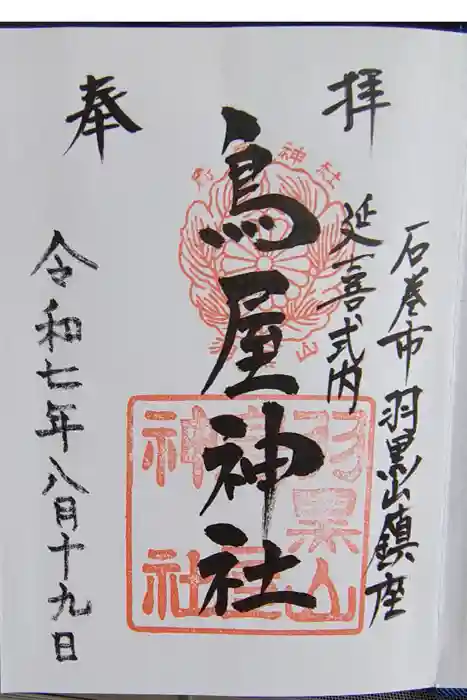 拝
石巻市羽黒山鎮座
延喜式内
鳥屋神社
羽黒山
神社
神社
奉
令和七年八月十九日